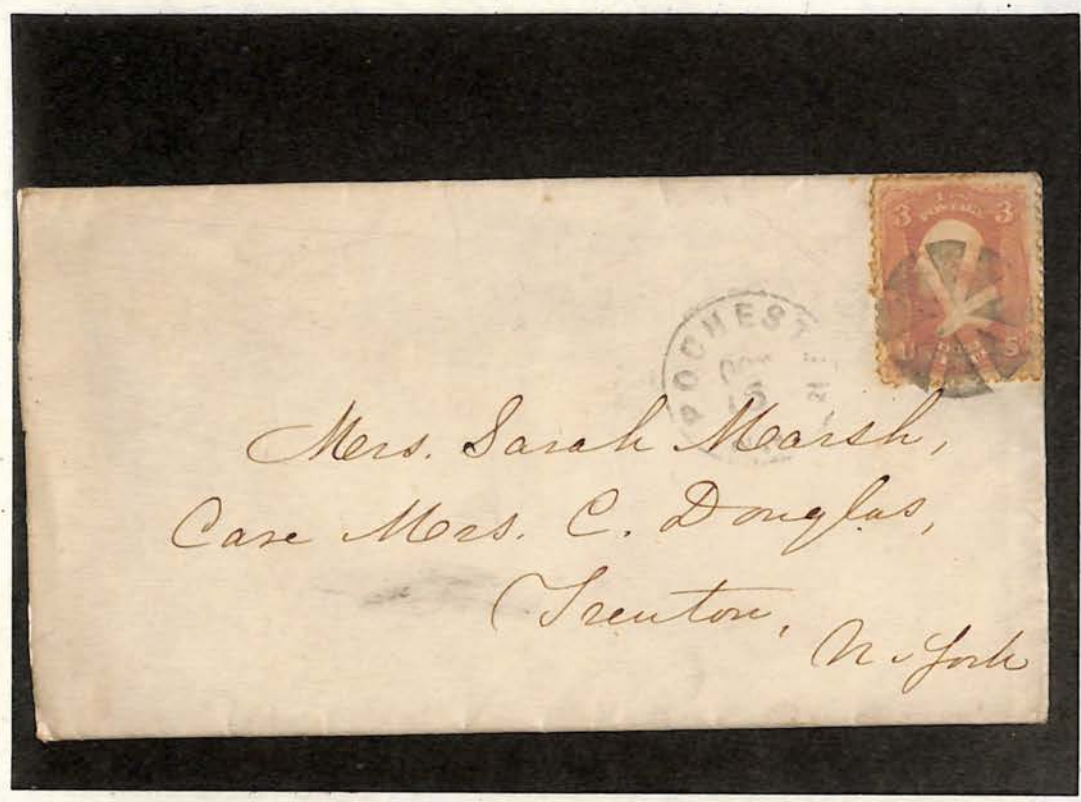 3 3
U S
ROCHEST
15
Mrs. Sarah Marsh,
Care Mrs. C. Douglas,
Trenton,
N. York